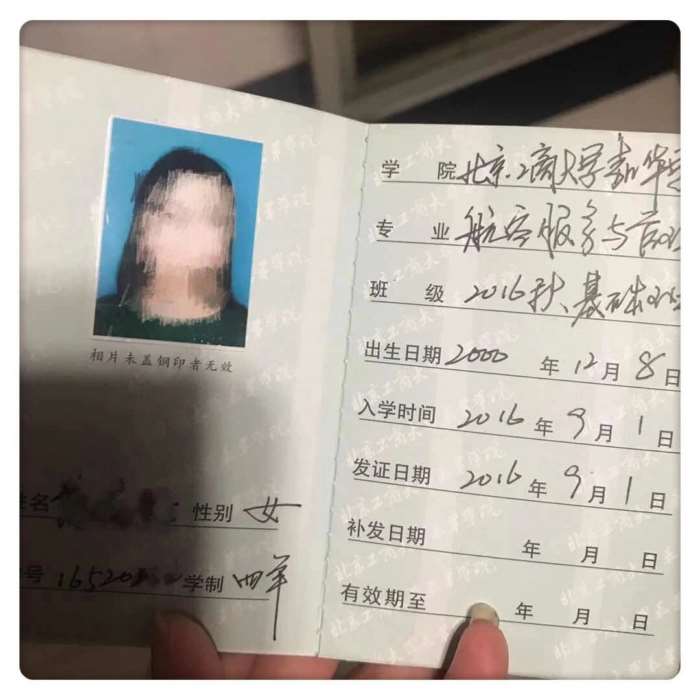 相片未盖钢印者无效
姓名 性别 女
号 165202 学制 四年
学 院 北京工商大学嘉华学
专 业 航空服务与
班 级 2016秋 基础
出生日期 2000 年 12 月 8 日
入学时间 2016 年 9 月 1 日
发证日期 2016 年 9 月 1 日
补发日期 年 月 日
有效期至 年 月 日